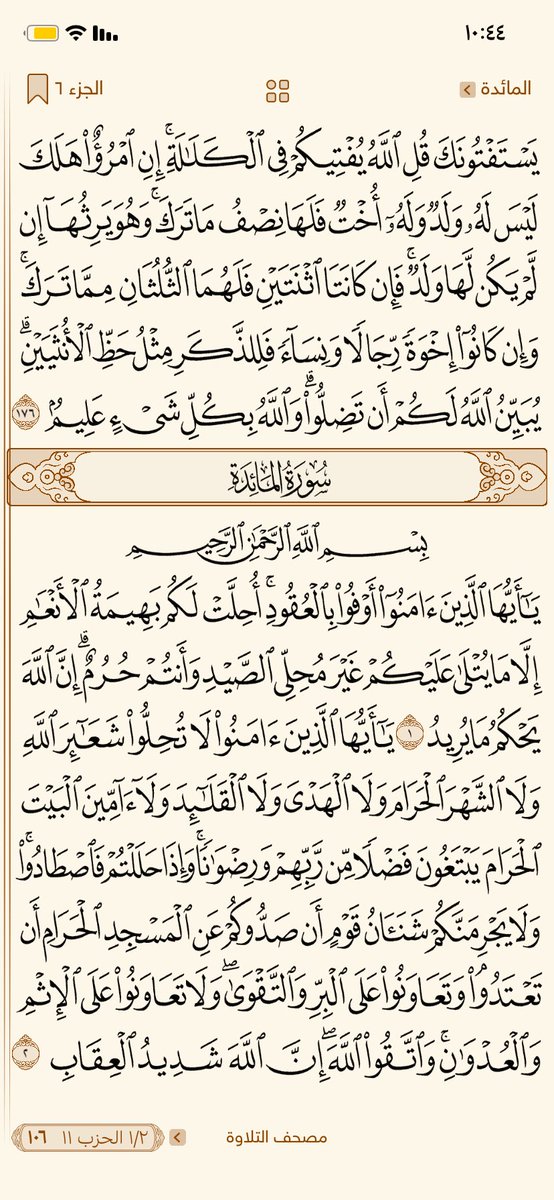 ١٠:٤٤
المائدة
الجزء ٦
يَسْتَفْتُونَكَ قُلِ ٱللَّهُ يُفْتِيكُمْ فِى ٱلْكَلَٰلَةِ ۚ إِنِ ٱمْرُؤٌا۟ هَلَكَ
لَيْسَ لَهُۥ وَلَدٌ وَلَهُۥٓ أُخْتٌ فَلَهَا نِصْفُ مَا تَرَكَ ۚ وَهُوَ يَرِثُهَآ إِن
لَّمْ يَكُن لَّهَا وَلَدٌ ۚ فَإِن كَانَتَا ٱثْنَتَيْنِ فَلَهُمَا ٱلثُّلُثَانِ مِمَّا تَرَكَ ۚ
وَإِن كَانُوٓا۟ إِخْوَةً رِّجَالًا وَنِسَآءً فَلِلذَّكَرِ مِثْلُ حَظِّ ٱلْأُنثَيَيْنِ ۗ
يُبَيِّنُ ٱللَّهُ لَكُمْ أَن تَضِلُّوا۟ ۗ وَٱللَّهُ بِكُلِّ شَىْءٍ عَلِيمٌۢ ١٧٦
سُورَةُ المَائِدَةِ
بِسْمِ ٱللَّهِ ٱلرَّحْمَٰنِ ٱلرَّحِيمِ
يَٰٓأَيُّهَا ٱلَّذِينَ ءَامَنُوٓا۟ أَوْفُوا۟ بِٱلْعُقُودِ ۚ أُحِلَّتْ لَكُم بَهِيمَةُ ٱلْأَنْعَٰمِ
إِلَّا مَا يُتْلَىٰ عَلَيْكُمْ غَيْرَ مُحِلِّى ٱلصَّيْدِ وَأَنتُمْ حُرُمٌ ۗ إِنَّ ٱللَّهَ
يَحْكُمُ مَا يُرِيدُ ١ يَٰٓأَيُّهَا ٱلَّذِينَ ءَامَنُوا۟ لَا تُحِلُّوا۟ شَعَٰٓئِرَ ٱللَّهِ
وَلَا ٱلشَّهْرَ ٱلْحَرَامَ وَلَا ٱلْهَدْىَ وَلَا ٱلْقَلَٰٓئِدَ وَلَآ ءَآمِّينَ ٱلْبَيْتَ
ٱلْحَرَامَ يَبْتَغُونَ فَضْلًا مِّن رَّبِّهِمْ وَرِضْوَٰنًا ۚ وَإِذَا حَلَلْتُمْ فَٱصْطَادُوا۟ ۚ
وَلَا يَجْرِمَنَّكُمْ شَنَـَٔانُ قَوْمٍ أَن صَدُّوكُمْ عَنِ ٱلْمَسْجِدِ ٱلْحَرَامِ أَن
تَعْتَدُوا۟ ۘ وَتَعَاوَنُوا۟ عَلَى ٱلْبِرِّ وَٱلتَّقْوَىٰ ۖ وَلَا تَعَاوَنُوا۟ عَلَى ٱلْإِثْمِ
وَٱلْعُدْوَٰنِ ۚ وَٱتَّقُوا۟ ٱللَّهَ ۖ إِنَّ ٱللَّهَ شَدِيدُ ٱلْعِقَابِ ٢
مصحف التلاوة
١/٢ الحزب ١١ ١٠٦